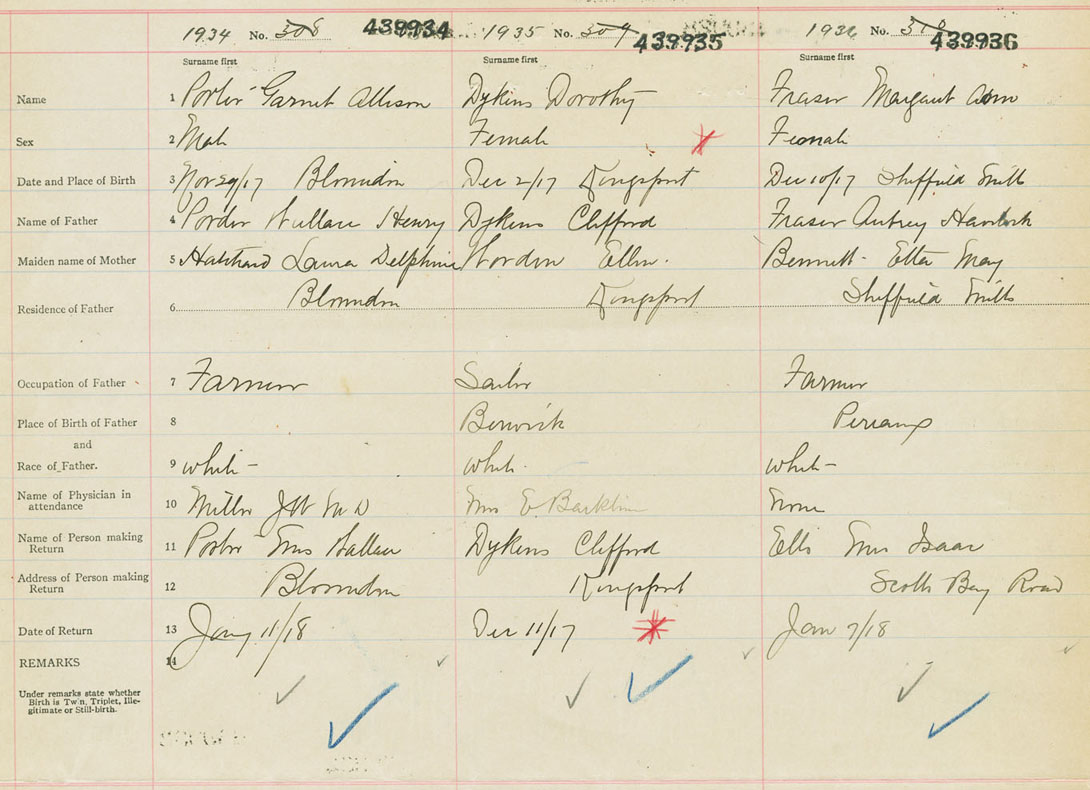 1934 No. 308 439934 1935 No. 309 439935 1936 No. 310 439936
Surname first Surname first Surname first
Name 1 Porter Garnet Allison Dykens Dorothy Fraser Margaret Ann
Sex 2 Male Female Female
Date and Place of Birth 3 Nov 29/17 Blomidon Dec 2/17 Kingsport Dec 10/17 Sheffield Mills
Name of Father 4 Porter Wallace Henry Dykens Clifford Fraser Aubrey
Maiden name of Mother 5 Laura Delphine Wordin Ellen. Bennett Etta May
Residence of Father 6 Blomidon Kingsport Sheffield Mills
Occupation of Father 7 Farmer Sailor Farmer
Place of Birth of Father 8 Berwick Pereaux
and
Race of Father. 9 white white white
Name of Physician in
attendance 10 Miller J W M D Mrs E None
Name of Person making
Return 11 Porter Mrs Wallace Dykens Clifford Ells Mrs Isaac
Address of Person making
Return 12 Blomidon Kingsport Scotts Bay Road
Date of Return 13 Jany 11/18 Dec 11/17 Jan 7/18
REMARKS 14
Under remarks state whether
Birth is Twin, Triplet, Ille-
gitimate or Still-birth.